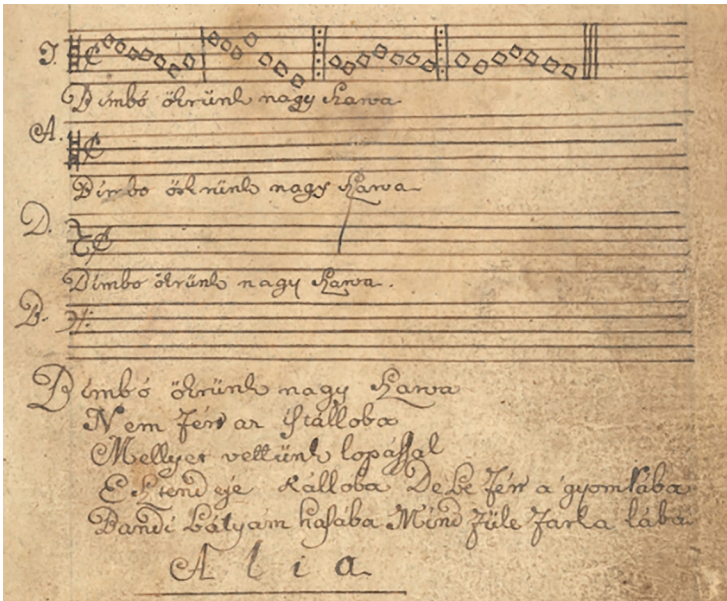 T.
Bimbó ökrünk nagy szarva
A.
Bimbo ökrünk nagy szarva
D.
Bimbo ökrünk nagy szarva.
B.
Bimbó ökrünk nagy szarva
Nem fér az istálloba
Mellyet vettünk lopással
Esztendeje Kálloba De be fér a gyomrába
Bandi bátyám hasába Mind füle farka lába
Alia